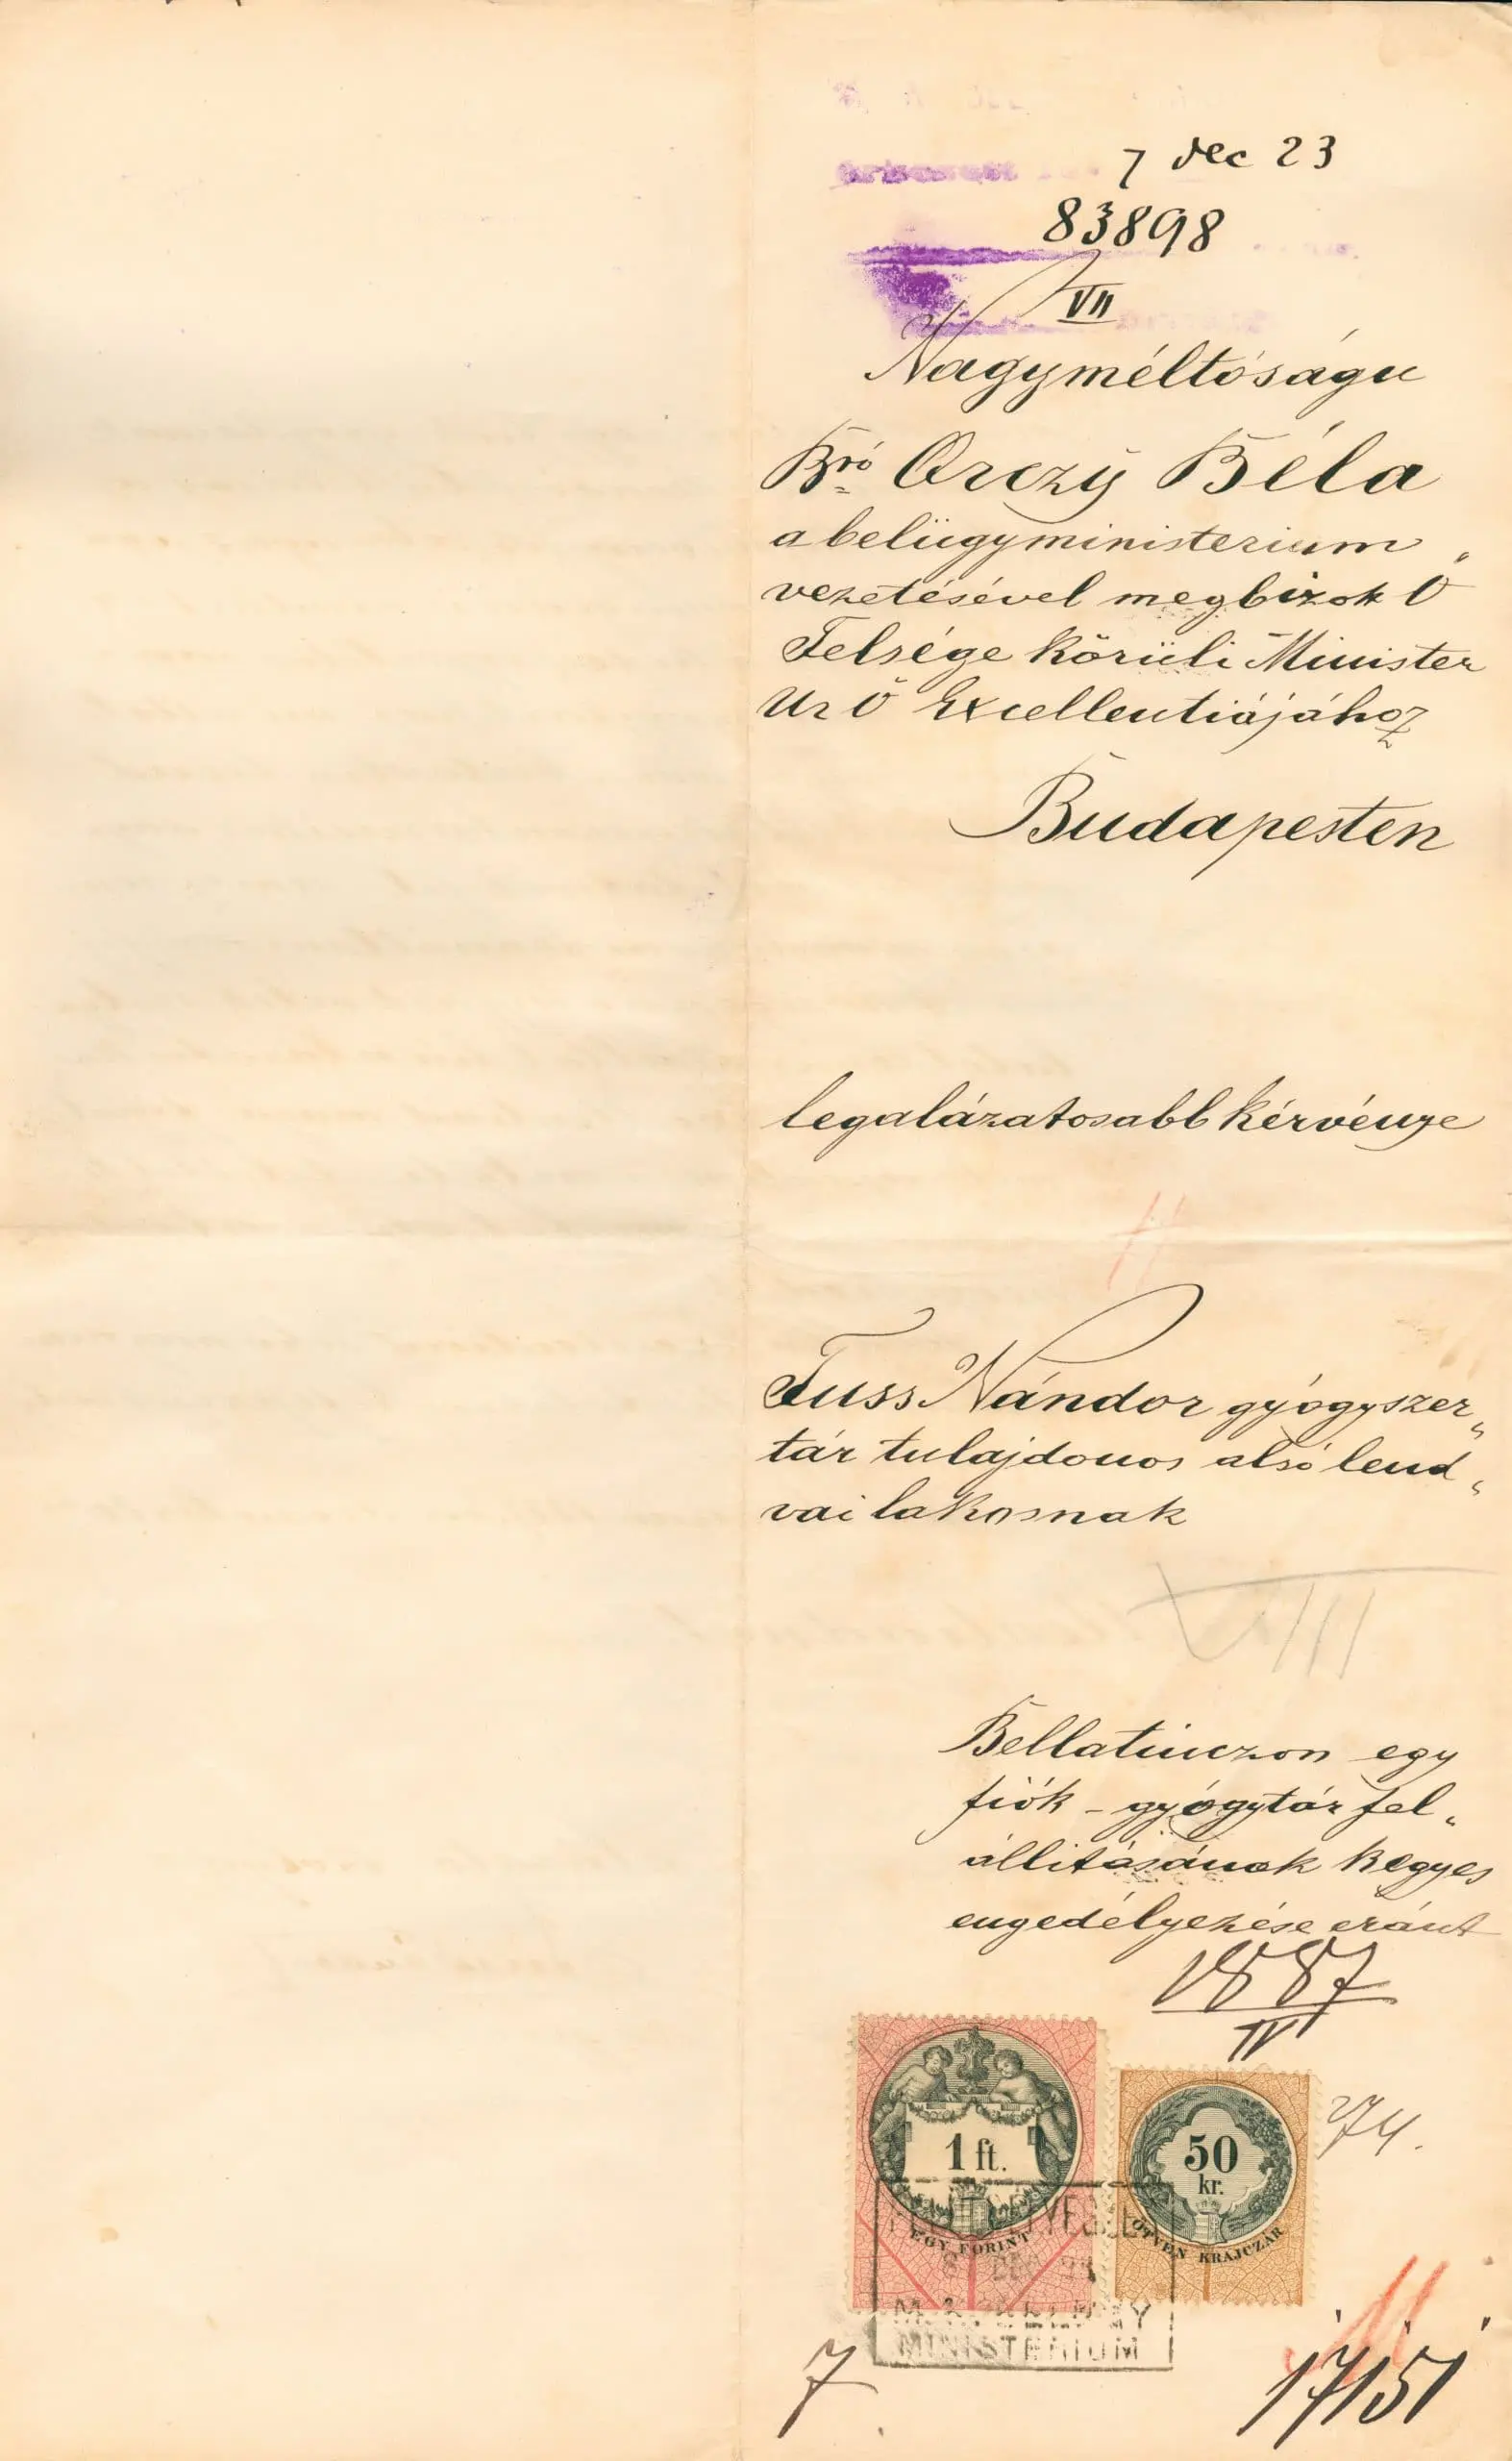 7 dec 23
83898
VII
Nagyméltóságu
Bró Orczy Béla
a belügyministerium
vezetésével megbizott Ő
Felsége körüli Minister
Ur Ő Excellentiájához
Budapesten
legalázatosabb kérvénye
Fuss Nándor gyógyszer„
tár tulajdonos alsó lend„
vai lakosnak
VIII
Bellatinczon egy
fiók - gyógytár fel„
állitásának kegyes
engedélyezése eránt
1887
IV
274.
1 ft.
EGY FORINT
50
kr.
ÖTVEN KRAJCZÁR
MINISTERIUM
7
17151